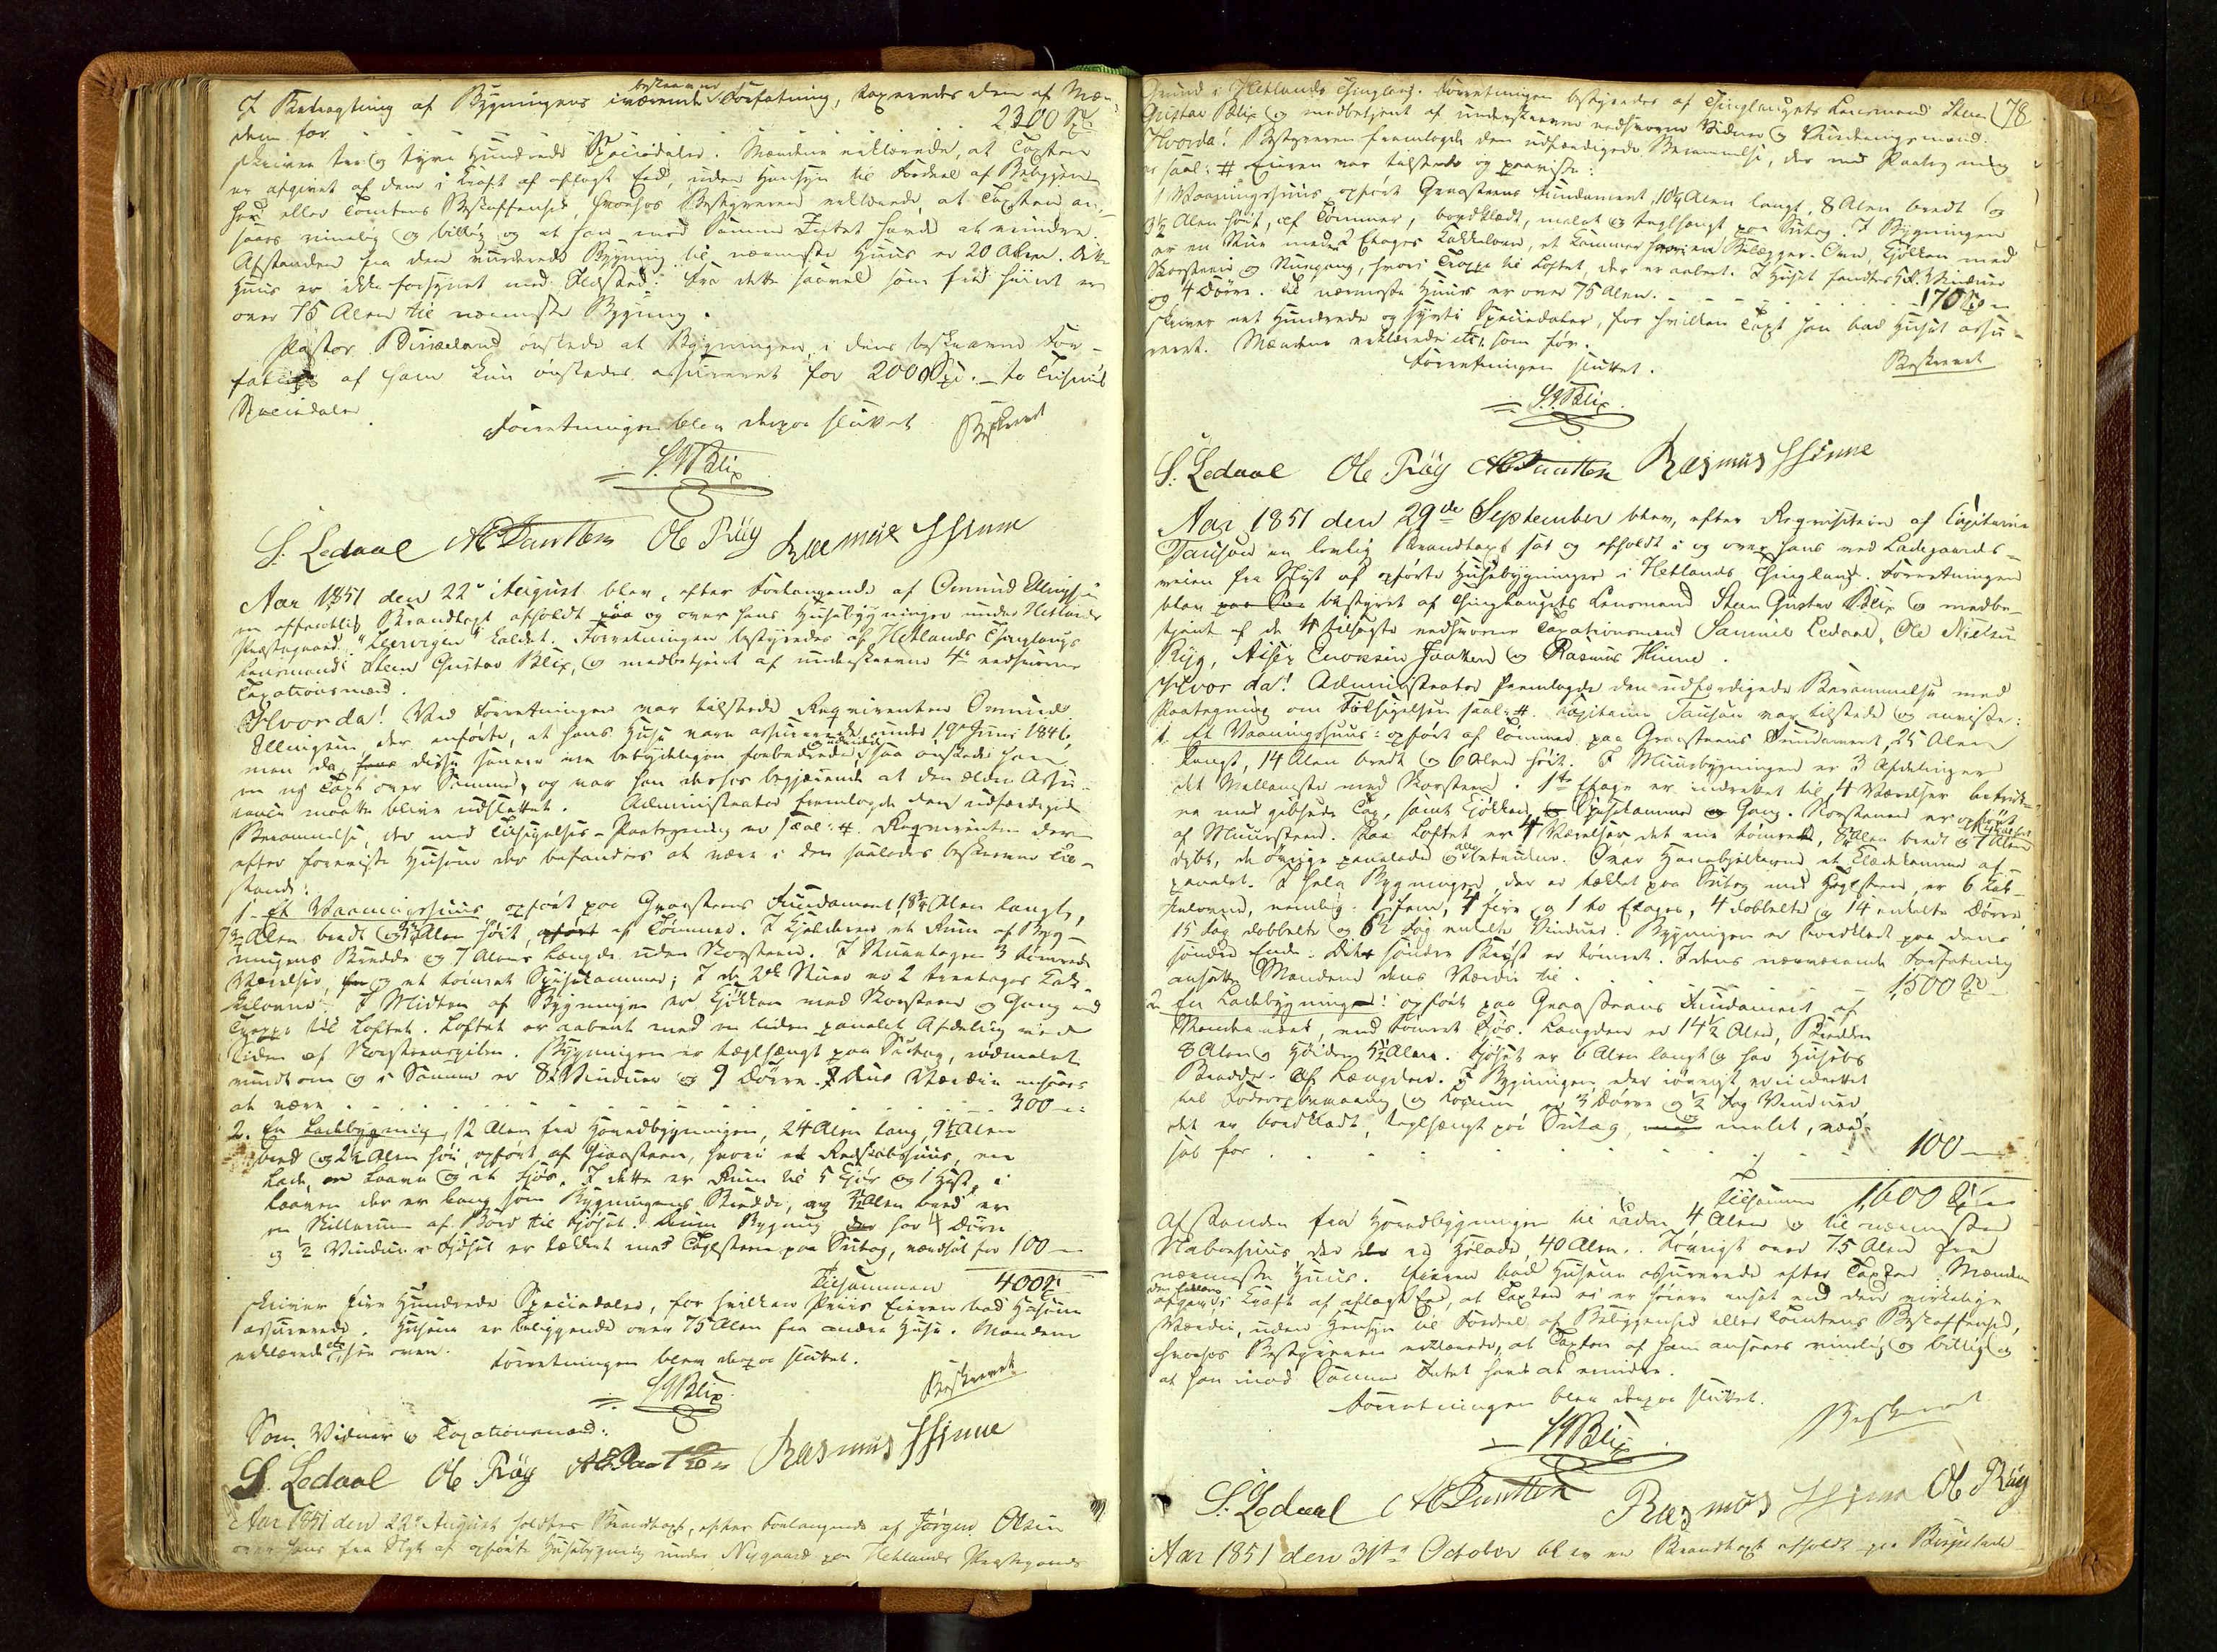 I Betragtning af Bygningens nærværende beskrevne Forfatning, taxeredes den af Mæn-
dem for 2300 Spd
skriver tre og tyve Hundrede Speciedaler. Mændene erklærede, at Taxten
er afgivet af dem i Kraft af aflagt Eed, uden Hensyn til Fordeel af Beliggen-
hed eller Tomtens Beskaffenhed, hvorhos Bestyreren erklærede, at Taxten an-
saaes rimelig og billig og at han mod Samme Intet havde at erindre.
Afstanden fra den vurderede Bygning til nærmeste Huus er 20 Alen. Dette
Huus er ikke forsynet med Ildsted. Fra dette saavel som fra hiint er
over 75 Alen til nærmeste Bygning.
Pastor ønskede at Bygningen, i dens beskrevne For-
fatning af ham kun ønskedes assureret for 2000 Spd. - to Tusinde
Speciedaler
Forretningen blev derpaa sluttet. Beskrevet
S. G. Blix
S. Ledaal AE Jaatten Ole Rüg Rasmus Hinne
Aar 1851 den 22de August blev, efter Forlangende af Omund Ellingsen
en offentlig Brandtaxt afholdt paa og over hans Huusebygninger under Hetlands
Præstegaard, kaldet. Forretningen bestyredes af Hetlands Thinglaugs
Lensmand Steen Gustav Blix, og medbetjent af underskrevne 4re edsvorne
Taxationsmænd.
Hvorda! Ved Forretningen var tilstede Reqvirenten Omund
Ellingsen, der anførte, at hans Huse vare assurerede under 19de Juni 1846,
men da disse senere ere betydeligen forbedrede, saa ønskede han
en ny Taxt over Samme, og var han derhos begjærende at den ældre Assu-
rance maatte blive udslettet. Administrator fremlagde den udfærdigede
Berammelse, der med Tilsigelses-Paategning er saal: #. Reqvirenten der-
efter foreviste Husene der befandtes at være i den saaledes beskrevne Til-
stand:
1. Et Vaaningshuus, opført paa Graasteens Fundament, 18¾ Alen langt,
7¾ Alen bredt og Alen høit, af Tømmer. I Kjelderen et Rum af Byg-
ningens Bredde og 7 Alens Længde uden Skorsteen. I Stueetagen 3 tømrede
Værelser, og et tømret Spisekammer; I de 2de Stuer er 2 toetages Kak-
kelovne. I Midten af Bygningen er Kjøkken med Skorsteen og Gang med
Trappe til Loftet. Loftet er aabent med en liden panelet Afdeling ved
Siden af Skorsteenspiben. Bygningen er teglhængt paa Sutag, rødmalet
rundt om og i Samme er 8 Vinduer og 9 Dörre. Dens Værdie ansaaes
at være 300 -
2. En Ladebygning, 12 Alen fra Hovedbygningen, 24 Alen lang, 9½ Alen
bred og 2½ Alen høi, opført af Graasteen, hvori et Redskabshuus, en
Lade, en Laave og et Fjøs. I dette er Rum til 5 Kjør og 1 Hest, i
Laaven der er lang som Bygningens Bredde, og Alen bred er
en Skillerum af Bord til Fjøset. Denne Bygning har 4 Dörre
og ½ Vindue. Fjøset er tækket med Taglsteen paa Sutag, værdsat for 100 -
Tilsammen 400 Spd
skriver fire Hundrede Speciedaler, for hvilken Priis Eieren bad Husene
assurerede. Husene er beliggende over 75 Alen fra andre Huse. Mændene
erklærede etc. see oven.
Forretningen blev derpaa sluttet.
Beskrevet
S G Blix
Som Vidner og Taxationsmænd:
S. Ledaal Ole Rüg AE Jaatten Rasmus Hinne
Aar 1851 den 22de August holdtes Brandtaxt, efter Forlangende af Jørgen Olsen
over hans fra Nyt af opførte Huusebygning under Nygaard paa Hetlands Præstegaards
78
Grund i Hetlands Thinglaug. Forretningen bestyredes af Thinglaugets Lensmand Steen
Gustav Blix og medbetjent af underskrevne edsvorne Vidner og Vurderingsmænd.
Hvorda! Bestyreren fremlagde den udfærdigede Berammelse, der med Paategning
er saal: # Eieren var tilstede og paaviste:
1 Vaaningshuus opført Graasteens Fundament, 10½ Alen langt, 8 Alen bredt og
3½ Alen høit, af Tømmer, bordklædt, malet og teglhængt paa Sutag. I Bygningen
er en Stue med 2 Etages Kakkelovn, et Kammer hvori en Bilægger-Ovn, Kjøkken med
Skorsteen og Stuegang, hvori Trappe til Loftet, der er aabent. I Huset fandtes Vinduer
og 4 Dörre. Til nærmeste Huus er over 75 Alen. 170 Spd
skriver eet Hundrede og syvti Speciedaler, for hvilken Taxt han bad Huset assu-
reret. Mændene erklærede etc. som før.
Forretningen sluttet.
Beskrevet
S. G. Blix
S. Ledaal Ole Rüg AE Jaatten Rasmus Hinne
Aar 1851 den 29de September blev, efter Reqvisition af Capitaine
Tausan en lovlig Brandtaxt sat og afholdt i og over hans ved Ladegaards-
veien fra Nyt af opførte Huusebygninger i Hetlands Thinglaug. Forretningen
blev bestyret af Thinglaugets Lensmand Steen Gustav Blix og medbe-
tjent af de 4 tilsagte edsvorne Taxationsmænd Samuel Ledaal, Ole Nielsen
Ryg, Enoksen Jaatten og Rasmus Hinne.
Hvor da! Administrator fremlagde den udfærdigede Berammelse med
Paategning om Tilsigelsen saal: #. Capitaine Tausan var tilstede og anviste:
1. Et Vaaningshuus: opført af Tømmer paa Graasteens Fundament, 25 Alen
Langt, 14 Alen bredt og 6 Alen høit. I Muurbygningen er 3 Afdelinger
det Mellemste med Skorsteen. 1ste Etage er indrettet til 4 Værelser betrukk-
ne med gibsede Tag, samt Kjøkken, Spisekammer og Gang. Skorstenen er opført
af Muursteen. Paa Loftet er 4 Værelser, det ene tømret, 8 Alen bredt og 7 Alen
dybt, de øvrige panelede og alle betrukne. Over Hanebjelkerne et Klædekammer af-
panelet. I hele Bygningen, der er tækket paa Sutag med Taglsteen, er 6 Kak-
kelovne, nemlig: 1 fem, 4 fire og 1 to Etages, 4 dobbelte og 14 enkelte Dörre
15 Fag dobbelte og 6½ Fag enkelte Vinduer. Bygningen er bordklædt paa dens
søndre Ende. Det søndre Bryst er tømret. I dens nærværende Forfatning
ansatte Mændene dens Værdie til 1,500 Spd
2. En Ladebygning: opført paa Graasteens Fundament af
med tømret Fjøs. Længden er 14½ Alen, Bredden
8 Alen og Høiden Alen. Fjøset er 6 Alen langt og har Husets
Bredde. af Længden. I Bygningen, der iøvrigt er indrettet
til Foderopbevaring og Locum er 3 Dörre og ½ Fag Vinduer
det er bordklædt, teglhængt paa Sutag, og malet, værd-
sat for 100 -
Tilsammen 1,600 Spd
Afstanden fra Hovedbygningen til Laden 4 Alen og til nærmeste
Nabohuus der er en Hølade, 40 Alen. Iøvrigt over 75 Alen fra
nærmeste Huus. Eieren bad Husene assurerede efter Taxten. Mændene
i Kraft af aflagt Eed, at Taxten ei er høiere ansat end den virkelige
Værdie, uden Hensyn til Fordeel af Beliggenhed eller Tomtens Beskaffenhed,
hvorhos Bestyreren erklærede, at Taxten af ham ansaaes rimelig og billig og
at han mod Samme Intet havde at erindre.
Forretningen blev derpaa sluttet.
Beskrevet
S G Blix
S. Ledaal AE Jaatten Rasmus Hinne Ole Rüg
Aar 1851 den 31te October blev en Brandtaxt afholdt paa